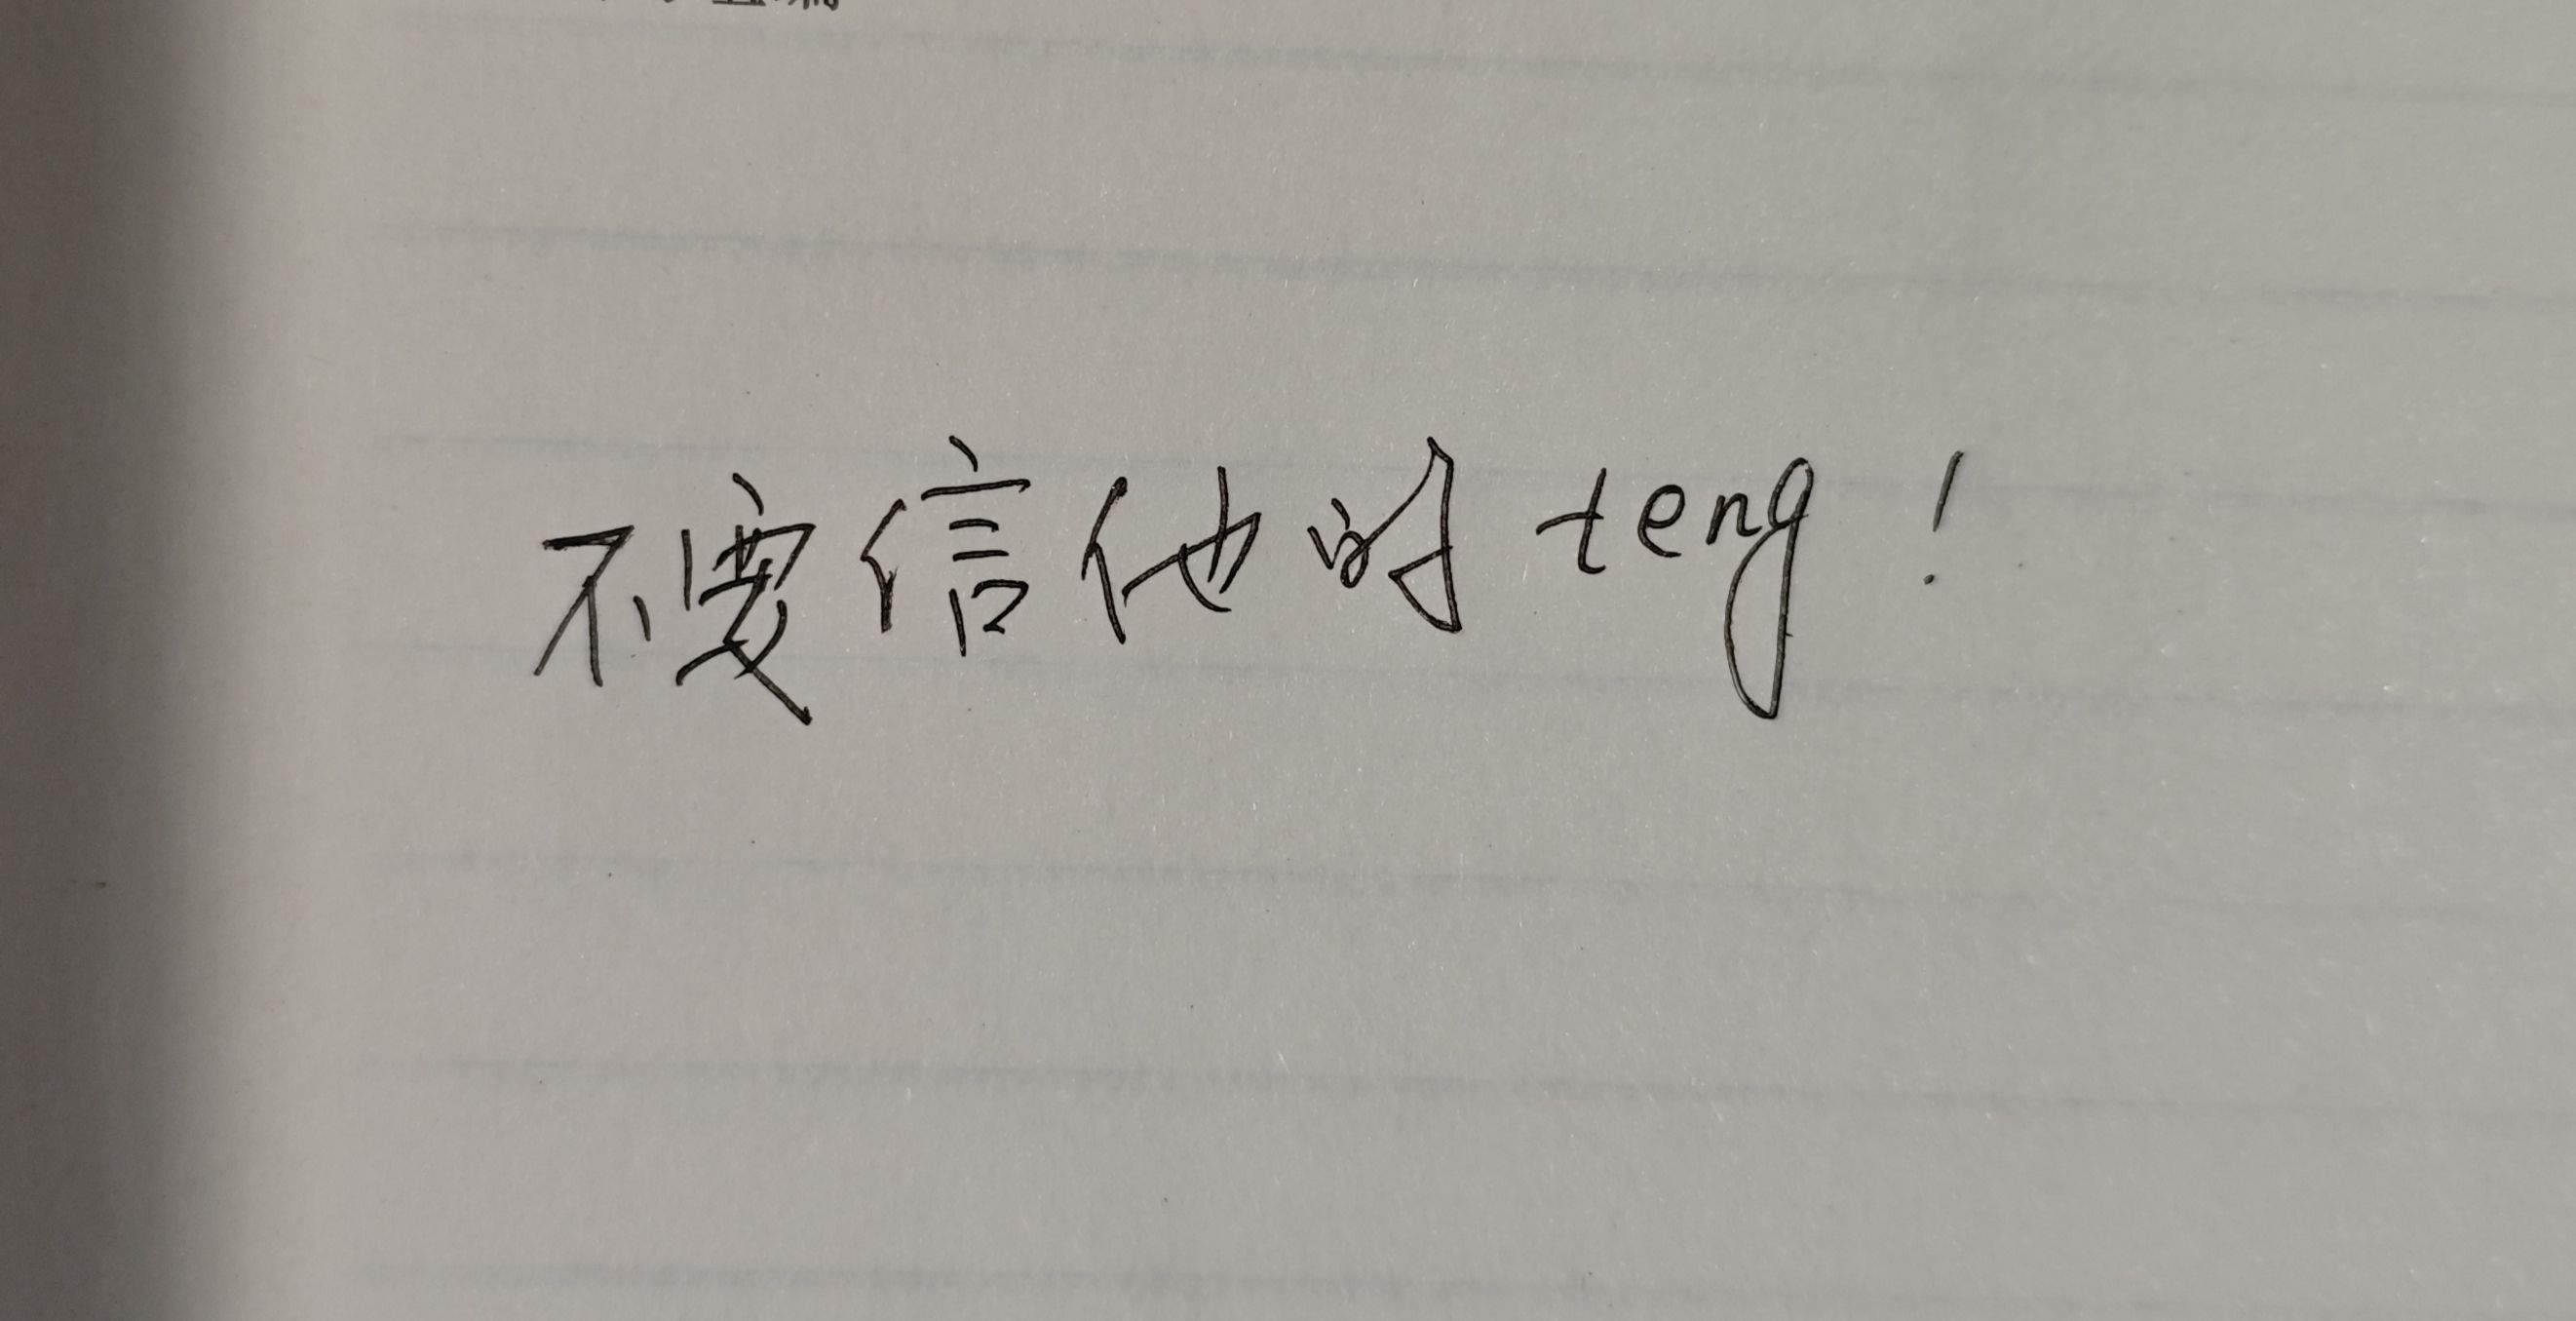 不要信他的teng！